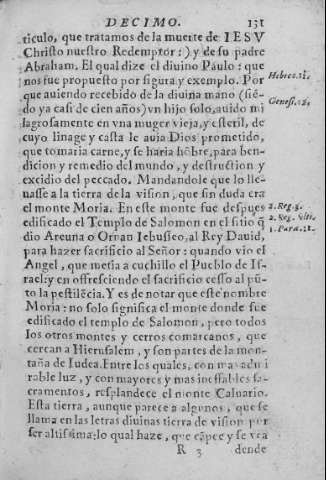 DECIMO. 131
ticulo, que tratamos de la muerte de IESV
Christo nuestro Redemptor:) y de su padre
Abraham. El qual dize el diuino Paulo: que
nos fue propuesto por figura y exemplo. Por
Hebreo. 11.
que auiendo recebido de la diuina mano (siẽ-
do ya casi de cien años) vn hijo solo, auido mi
Genesi.
lagrosamente en vna muger vieja, y esteril, de
cuyo linage y casta le auia Dios prometido,
que tomaria carne, y se haria hõbre, para ben-
dicion y remedio del mundo, y destruction y
excidio del peccado. Mandandole que lo lle-
uasse a la tierra de la vision, que sin duda era
el monte Moria. En este monte fue despues
2. Reg.
edificado el Templo de Salomon en el sitio q̃
2. Reg. vlti.
dio Areuna o Ornan Iebuseo, al Rey Dauid,
1. Para. 21.
para hazer sacrificio al Señor: quando vio el
Angel, que metia a cuchillo el Pueblo de Is-
rael: y en offresciendo el sacrificio cesso al pũ-
to la pestilẽcia. Y es de notar que este nombre
Moria: no solo significa el monte donde fue
edificado el templo de Salomon, pero todos
los otros montes y cerros comarcanos, que
cercan a Hierusalem, y son partes de la mon-
taña de Iudea. Entre los quales, con
rable luz, y con mayores y mas ineffables sa-
cramentos, resplandece el monte Caluario.
Esta tierra, aunque parece a algunos, que se
llama en las letras diuinas tierra de vision por
ser altissima: lo qual haze, que cãpee y se vea
R 3 dende